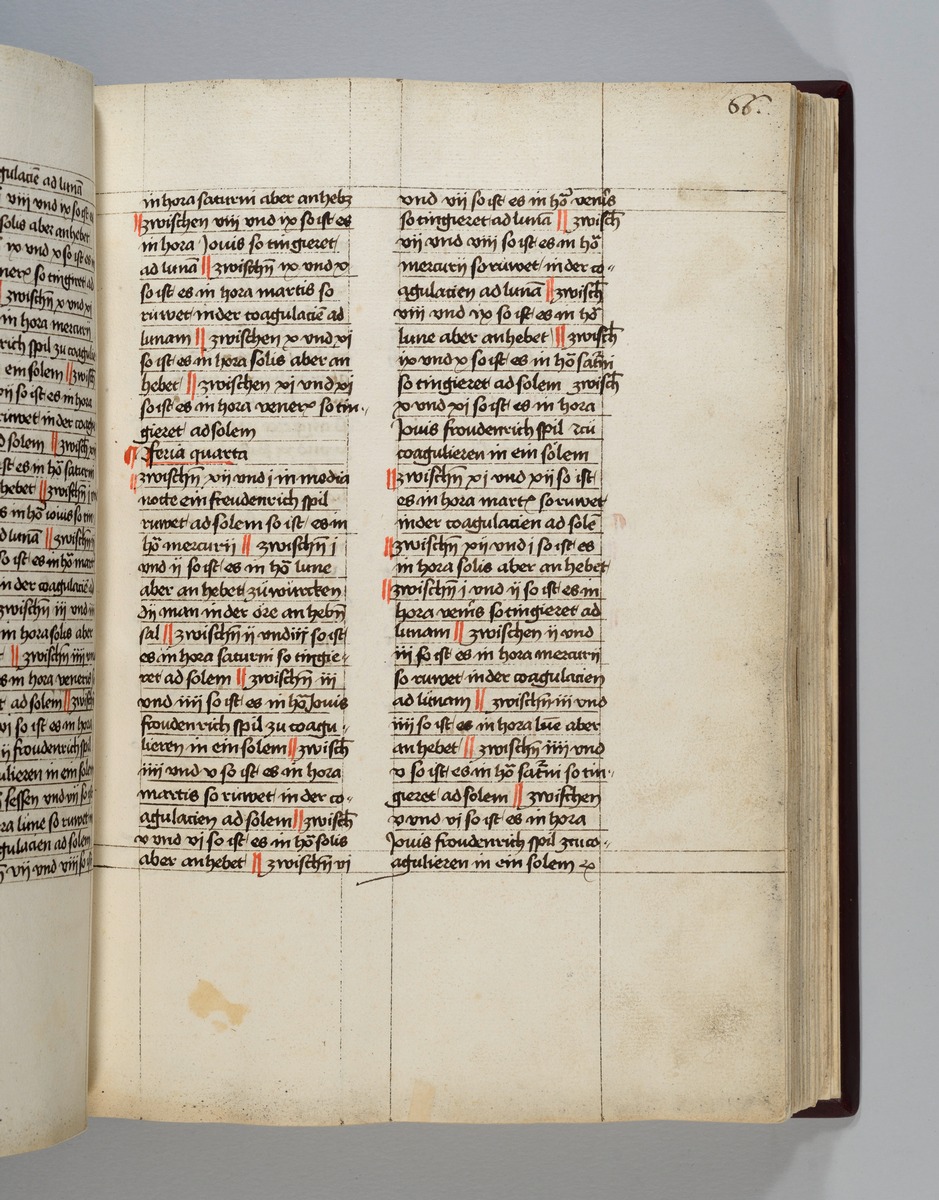 gulaciē ad lunā
viii vnd ix so ist es
solis aber anhebet
ix vnd x so ist es
so tingieret ad
zwischn̄ x vnd xi
in hora mercurii
rich spil zu coagulie
ein solem ‖ zwisch
xii so ist es in hora
ruwet in der coagu
d solem ‖ zwischn̄
ist es in hō saturni
hebet ‖ zwischn̄ i
s in hō iouis so tin
d lunā ‖ zwischn̄
so ist es in hō mart
in der coagulacie ad
zwischn̄ iii vnd iiii
in hora solis aber
‖ zwischn̄ iiii vnd
es in hora veneris
ad solem ‖ zwisch
vi so ist es in hora
ii froudenrich spil
ulieren in ein solem
sessen vnd vii so ist
ra lune so ruwet in
gulacien ad solem
vii vnd viii so ist
66.
in hora saturni aber anhebz
‖ zwischen viii vnd ix so ist es
in hora Jouis so tingieret
ad lunā ‖ zwischn̄ ix vnd x
so ist es in hora martis so
ruwet in der coagulaciē ad
lunam ‖ zwischen x vnd xi
so ist es in hora solis aber an
hebet ‖ zwischen xi vnd xi
so ist es in hora venerꝭ so tin-
gieret ad solem
¶ feria quarta
‖ zwischn̄ xii vnd i in media
nocte ein freudenrich spil
ruwet ad solem so ist es in
hō mercurii ‖ zwischn̄ i
vnd ii so ist es in hō lune
aber an hebet zü würcken
dij man in der ore an hebn̄
sal ‖ zwischn̄ ii vnd iij so ist
es in hora saturni so tingie-
ret ad solem ‖ zwischn̄ iii
vnd iiii so ist es in hō Jouis
froudenrich spil zu coagu-
lieren in ein solem ‖ zwisch̄
iiii vnd v so ist es in hora
martis so rüwet in der co-
agulacien ad solem ‖ zwisch̄
v vnd vi so ist es in hō solis
aber an hebet ‖ zwischn̄ vi
vnd vii so ist es in hō venīs
so tingieret ad lunā ‖ zwisch̄
vii vnd viii so ist es in hō
mercurij so ruwet in der co-
agulacien ad lunā ‖ zwisch̄
viii vnd ix so ist es in hō
lune aber an hebet ‖ zwisch̄
ix vnd x so ist es in hō sat̄ni
so tingieret ad solem zwisch̄
x vnd xi so ist es in hora
Jouis froudenrich spil zcü
coagulieren in ein solem
‖ zwischn̄ xi vnd xii so ist
es in hora martꝭ so ruwet
in der coagulacien ad solē
‖ zwischn̄ xii vnd i so ist es
in hora solis aber an hebet
‖ zwischn̄ i vnd ii so ist es in
hora venīs so tingieret ad
lunam ‖ zwischen ii vnd
iii so ist es in hora mercurij
so ruwet in der coagulacien
ad lünam ‖ zwischn̄ iii vnd
iiii so ist es in hora lūe aber
an hebet ‖ zwischn̄ iiii vnd
v so ist es in hō sat̄ni so tin-
gieret ad solem ‖ zwischen
v vnd vi so ist es in hora
Jouis froudenrich spil zcu co-
agulieren in ein solem ꝛc